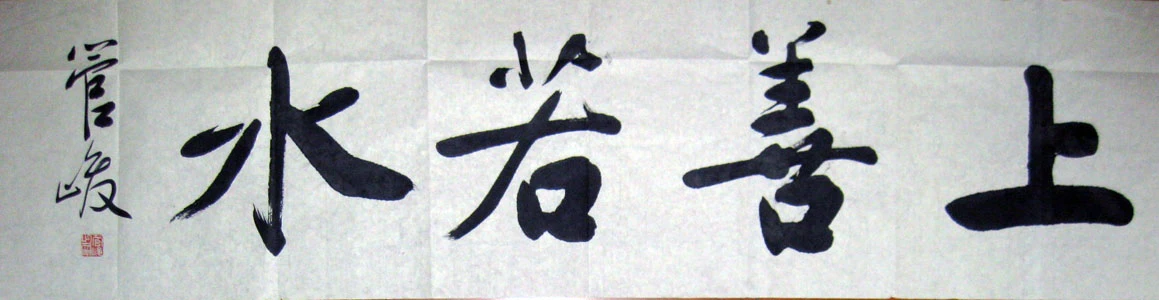 上善若水
管峻